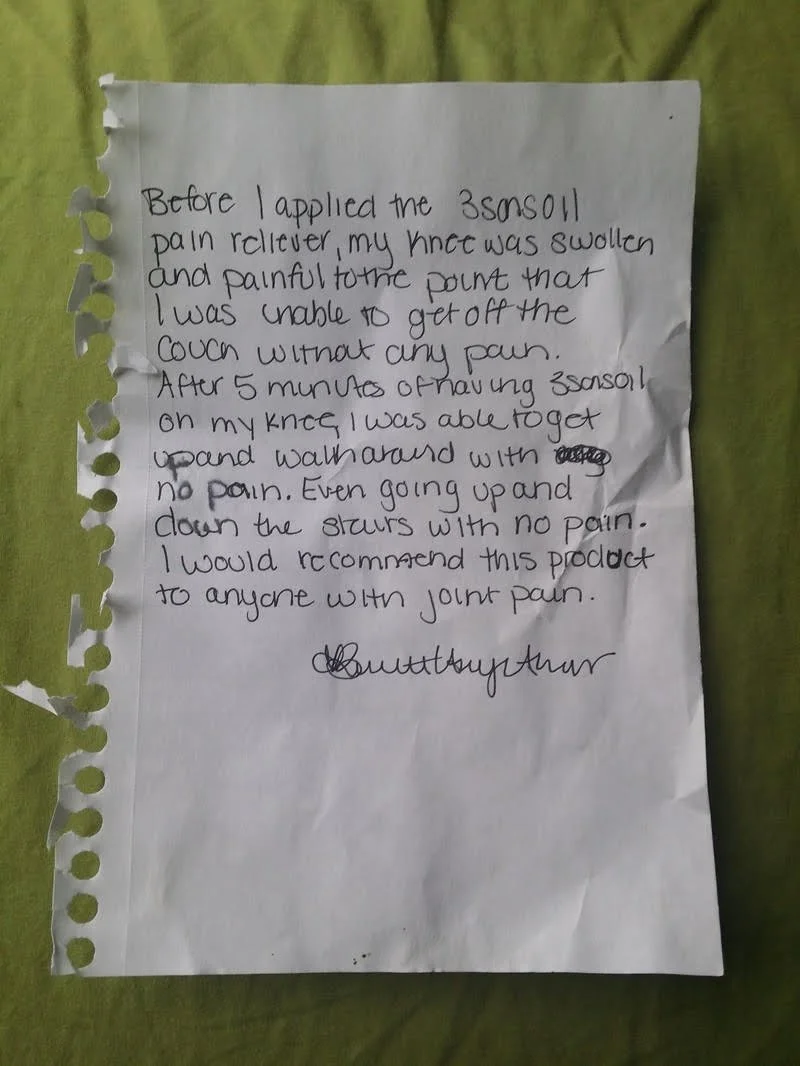 Before I applied the 3sonsoil
pain reliever, my knee was swollen
and painful to the point that
I was unable to get off the
couch without any pain.
After 5 minutes of having 3sonsoil
on my knee, I was able to get
up and walk around with
no pain. Even going up and
down the stairs with no pain.
I would recommend this product
to anyone with joint pain.